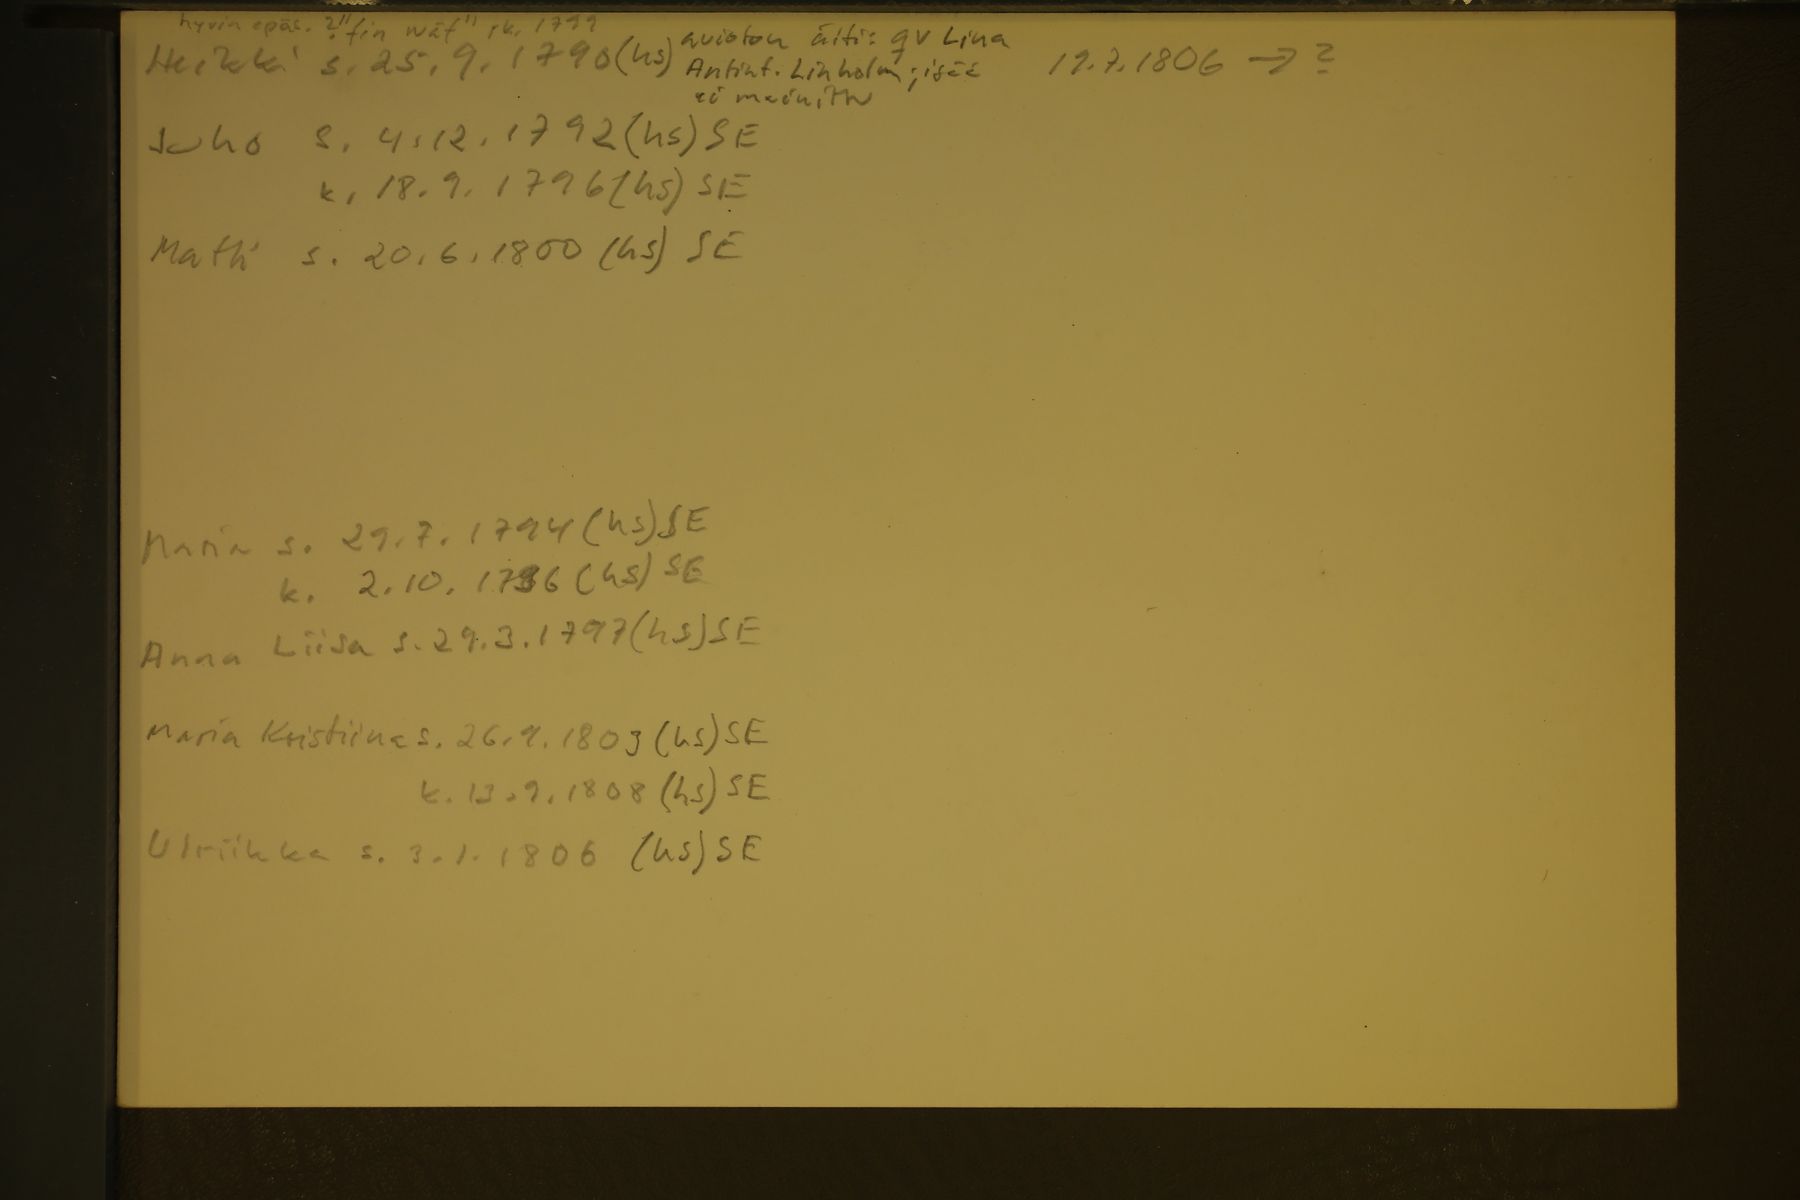 hyvin epäs. ? "fin wäf" rk. 1799
Heikki s. 25.9.1790 (hs) avioton äiti: qv Lina 19.7.1806 → ?
Antint. Linholm; isää
ei mainittu
Juho s. 4.12.1792 (hs) SE
k. 18.9.1796 (hs) SE
Matti s. 20.6.1800 (hs) SE
Maria s. 29.7.1794 (hs) SE
k. 2.10.1796 (hs) SE
Anna Liisa s. 29.3.1797 (hs) SE
Maria Kristiina s. 26.9.1803 (hs) SE
k. 13.9.1808 (hs) SE
Ulriikka s. 3.1.1806 (hs) SE